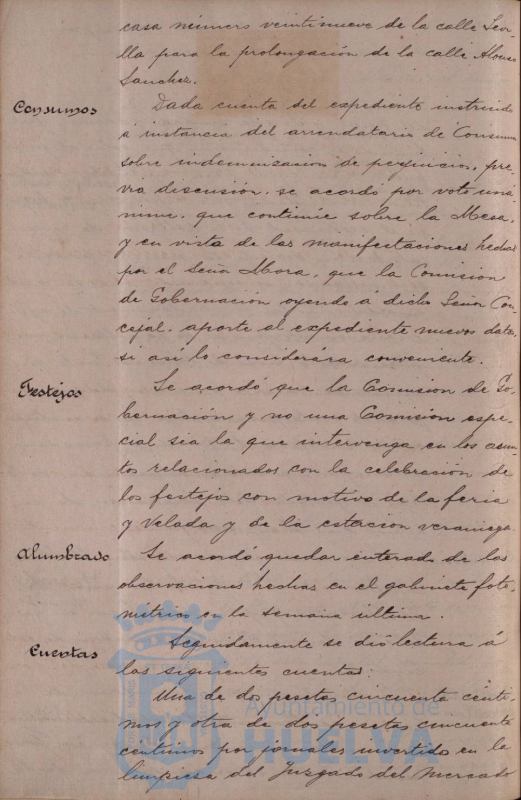 casa número veintinueve de la calle Sevi-
lla para la prolongación de la calle Alonso
Sanchez.
Consumos
Dada cuenta del expediente instruido
á instancia del arrendatario de Consumos
sobre indemnizacion de perjuicios, pre-
via discusión, se acordó por voto uná-
nime, que continúe sobre la Mesa,
y en vista de las manifestaciones hechas
por el Señor Mora, que la Comision
de Gobernación oyendo á dicho Señor Con-
cejal, aporte al expediente nuevos datos,
si así lo considerára conveniente.
Festejos
Se acordó que la Comision de Go-
bernación y no una Comision espe-
cial sea la que intervenga en los asun-
tos relacionados con la celebración de
los festejos con motivo de la feria
y Velada y de la estacion veraniega.
Alumbrado
Se acordó quedar enterado de las
observaciones hechas en el gabinete foto-
métrico en la semana última.
Cuentas
Seguidamente se dió lectura á
las siguientes cuentas:
Una de dos pesetas cincuenta cénti-
mos y otra de dos pesetas cincuenta
centimos por jornales invertido en la
limpiesa del Juzgado del Mercado
Ayuntamiento de
HUELVA